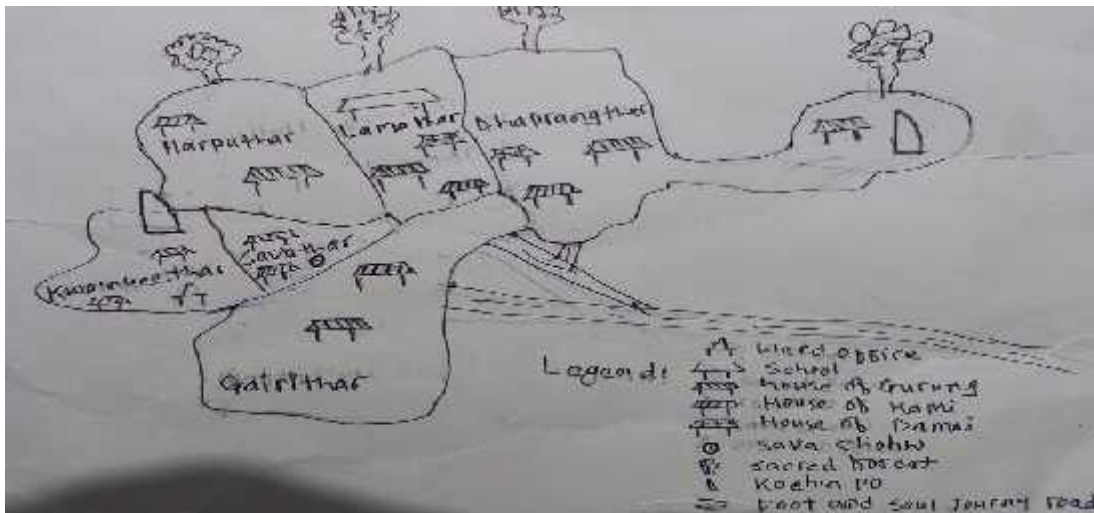 Harputhar
Lamathar
Dhaprangther
Savathar
Kwoinbeethar
Gairithar
Legend:
Ward office
School
House of Gurung
House of Kami
House of Damai
Sava Chohw
Sacred forest
foot and soul Journy road